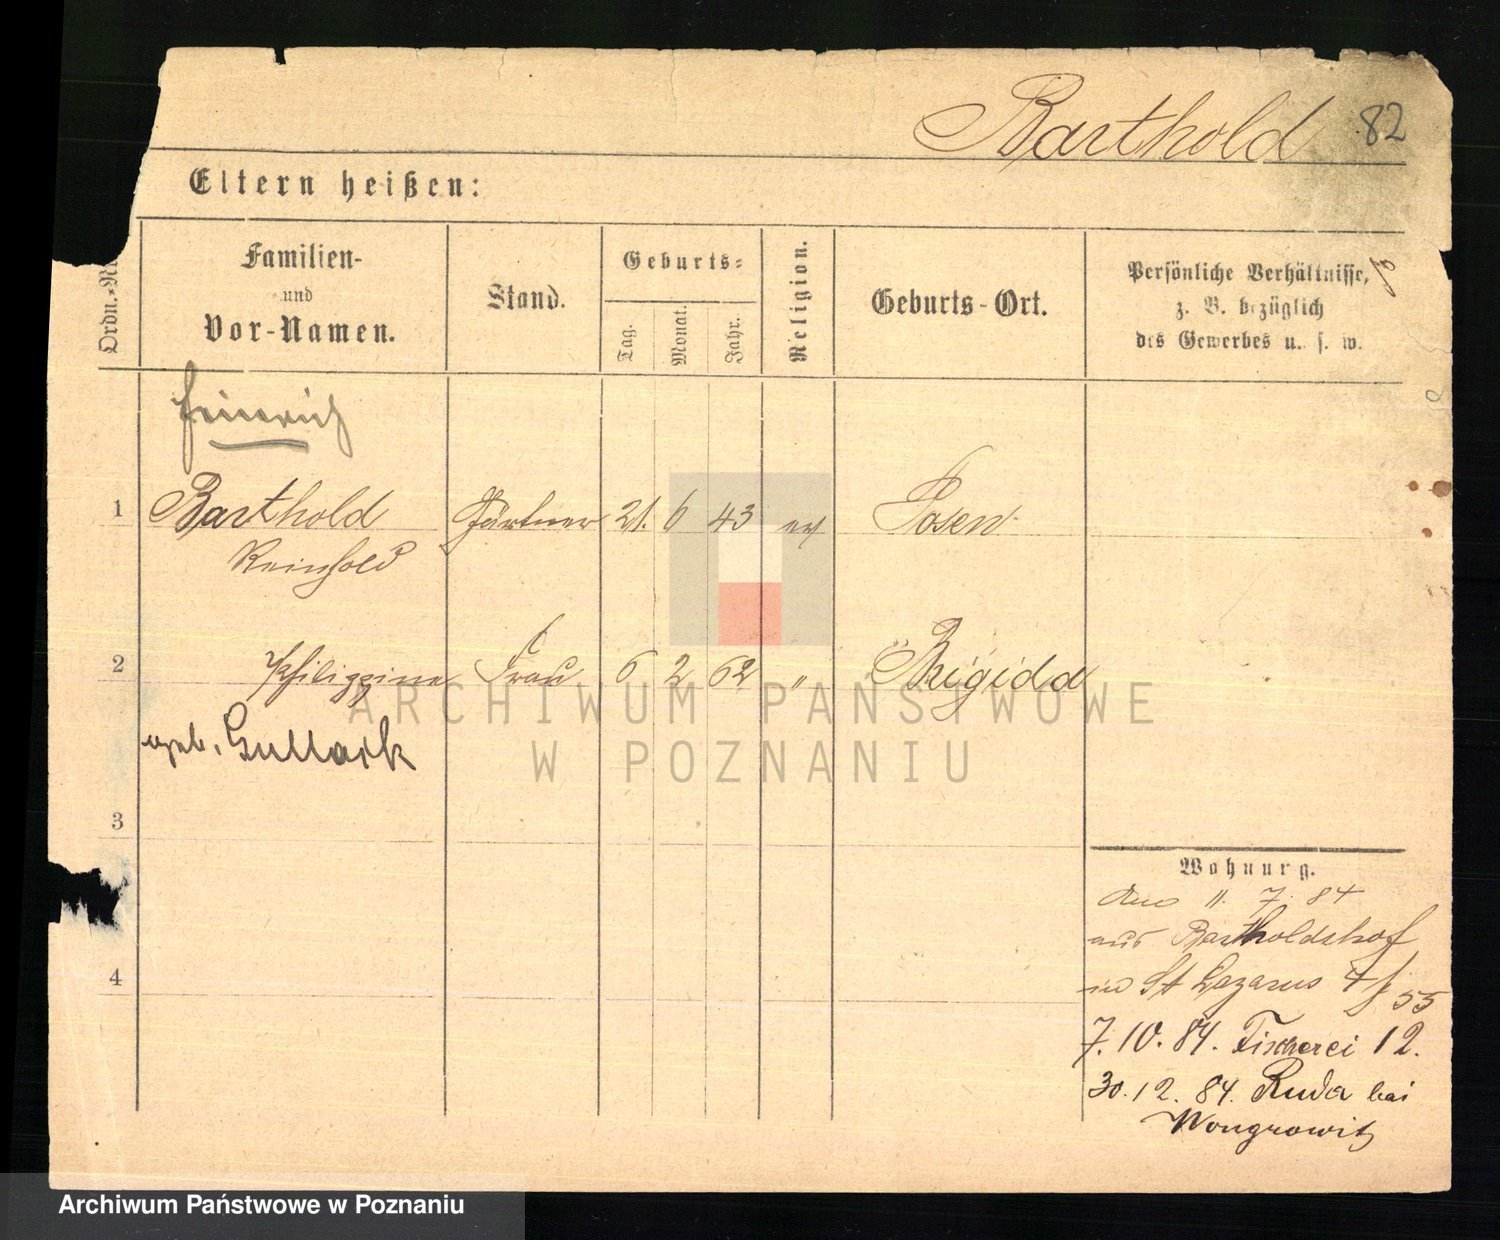 Barthold 82
Eltern heißen:
Ordn.-Nr
Familien-
und
Vor-Namen.
Stand.
Geburts-
Tag.
Monat.
Jahr.
Religion.
Geburts-Ort.
Persönliche Verhältnisse,
z. B. bezüglich
des Gewerbes u. s. w.
Heinrich
1 Barthold Gärtner 21. 6 43 ev Posen
Reinhold
2 Philippine Frau 6 2 62 "
geb. Gullack
3
4
Wohnung.
11. 7. 84
aus Bartholdshof
in St Lazarus 55
7. 10. 84. Fischerei 12.
30. 12. 84. Ruda bei
Wongrowitz
ARCHIWUM PAŃSTWOWE
W POZNANIU
Archiwum Państwowe w Poznaniu